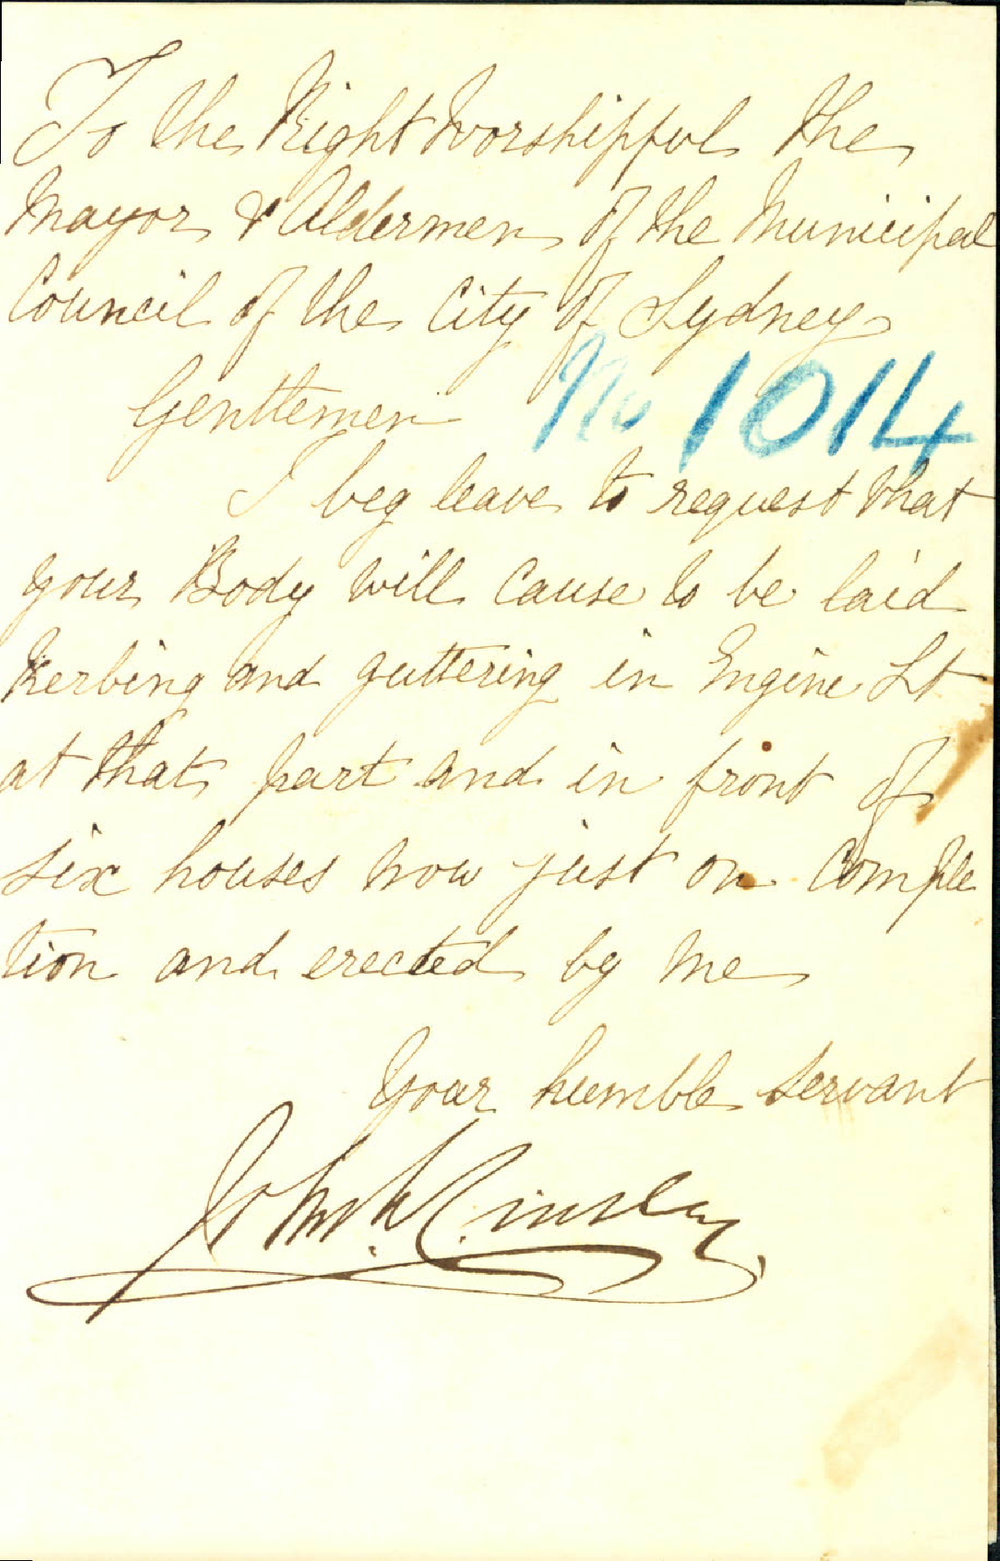 To the Right Worshipful the
Mayor & Aldermen of the Municipal
Council of the City of Sydney
Gentlemen
No 1014
I beg leave to request that
your Body will cause to be laid
Kerbing and guttering in Engine St
at that part and in front of
six houses now just on comple
tion and erected by me
Your humble servant
John Kinsley